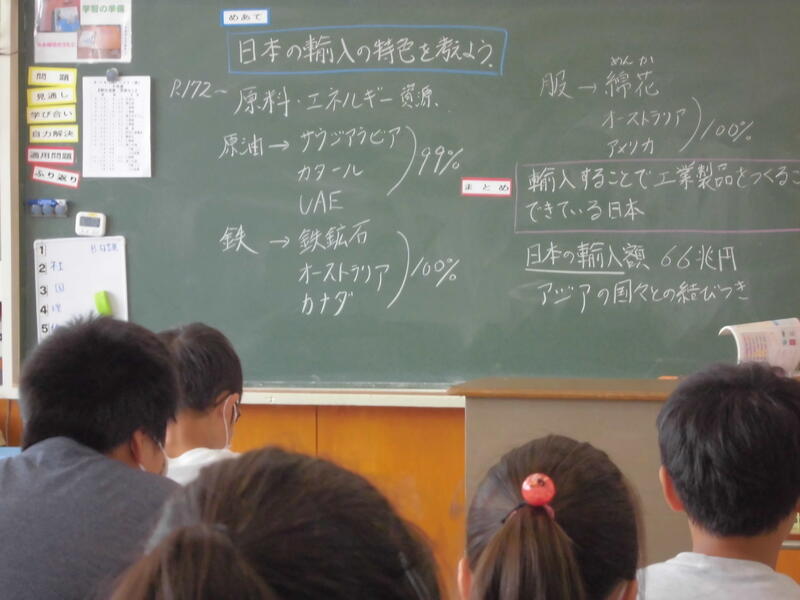 学習の準備
めあて
日本の輸入の特色を考えよう。
P.172~
原料・エネルギー資源
原油→サウジアラビア
カタール
UAE
99%
鉄→鉄鉱石
オーストラリア
カナダ
100%
めんか
服→綿花
オーストラリア
アメリカ
100%
まとめ
輸入することで工業製品をつくるこ
できている日本
日本の輸入額 66兆円
アジアの国々との結びつき
問題
見通し
学び合い
自力解決
適用問題
ふり返り
1
2 社
3 国
4 理
5